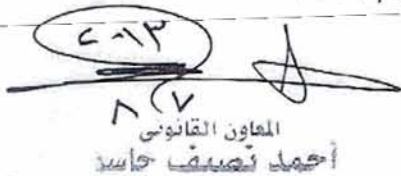 ٢٠١٣
٨/٧
المعاون القانوني
أحمد نصيف جاسد